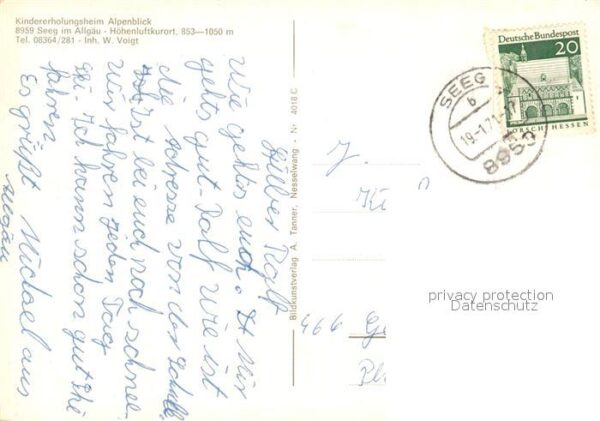 Kindererholungsheim Alpenblick
8959 Seeg im Allgäu - Höhenluftkurort, 853—1050 m
Tel. 08364/281 - Inh. W. Voigt
Lieber Ralf
Wie gehts euch. Mir
gehts gut. Ralf wie ist
die Adresse von der Schule
Ist bei euch noch schnee.
Wir fahren jeden Tag
Schi. Ich kann schon gut Schi
fahren.
Es grüßt Michael aus
Allgäu
Bildkunstverlag A. Tanner, Nesselwang - Nr. 4018 C
J.
466 Ge
Deutsche Bundespost
20
LORSCH/HESSEN
SEEG
b
19.-1.71-17
8959
privacy protection
Datenschutz